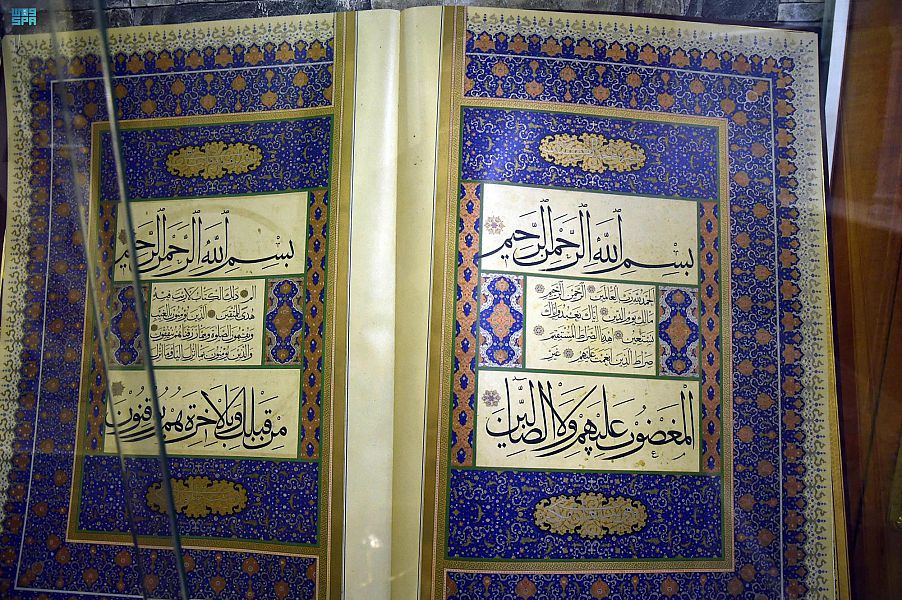 واس
SPA
بِسْمِ ٱللَّهِ ٱلرَّحْمَٰنِ ٱلرَّحِيمِ
الحمد لله رب العالمين الرحمن الرحيم
مالك يوم الدين اياك نعبد واياك
نستعين اهدنا الصراط المستقيم
صراط الذين انعمت عليهم غير
المغضوب عليهم ولا الضالين
بِسْمِ ٱللَّهِ ٱلرَّحْمَٰنِ ٱلرَّحِيمِ
الم ذلك الكتاب لا ريب فيه
هدى للمتقين الذين يؤمنون بالغيب
ويقيمون الصلوة ومما رزقناهم ينفقون
والذين يؤمنون بما انزل اليك وما انزل
من قبلك وبالاخرة هم يوقنون